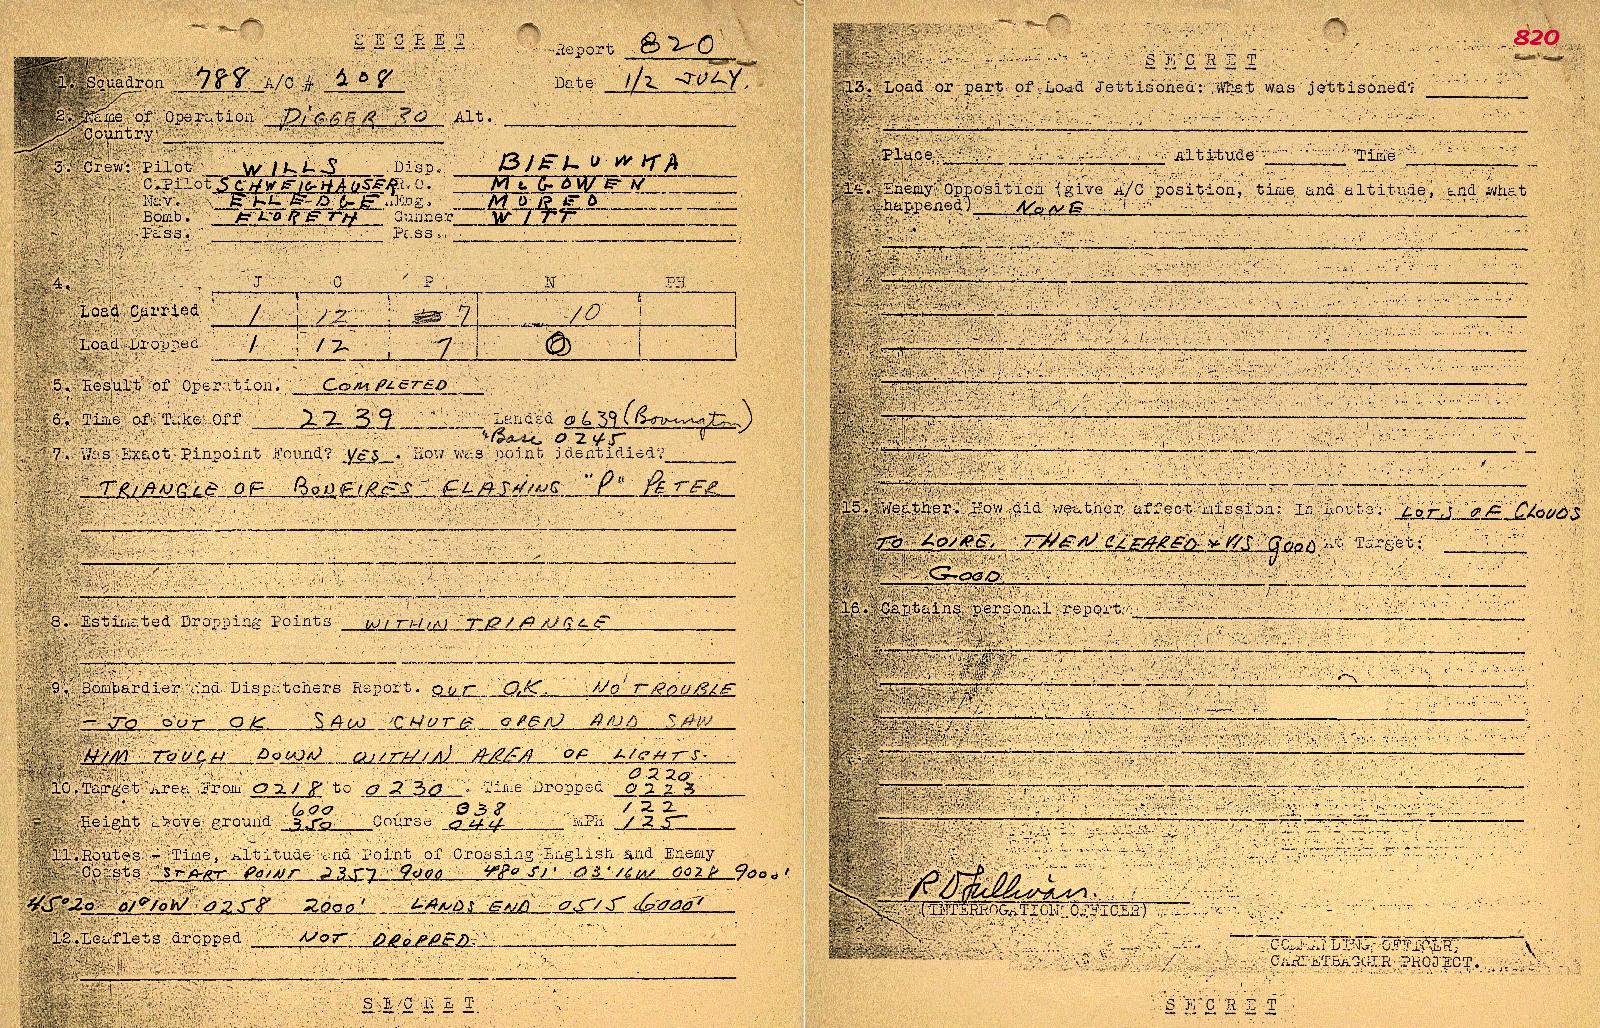 SECRET
Report 820
1. Squadron 788 A/C # 208 Date 1/2 JULY.
2. Name of Operation DIGGER 30 Alt.
Country
3. Crew: Pilot WILLS Disp. BIELUWKA
C.Pilot SCHWEIGHAUSER R.O. McGOWEN
Nav. ELLEDGE Eng. MUREO
Bomb. FLORETH Gunner WITT
Pass. Pass.
4. J C P N PH
Load Carried 1 12 7 10
Load Dropped 1 12 7 0
5. Result of Operation. COMPLETED
6. Time of Take Off 2239 Landed 0639 (Bovington)
"Base 0245
7. Was Exact Pinpoint Found? YES. How was point identidied?
TRIANGLE OF BONFIRES - FLASHING "P" PETER
8. Estimated Dropping Points WITHIN TRIANGLE
9. Bombardier and Dispatchers Report. OUT OK NO TROUBLE
- JO OUT OK SAW CHUTE OPEN AND SAW
HIM TOUCH DOWN WITHIN AREA OF LIGHTS.
0220
10. Target Area From 0218 to 0230. Time Dropped 0223
600 038 122
Height above ground 350 Course 044 MPH 125
11. Routes - Time, Altitude and Point of Crossing English and Enemy
Coasts START POINT 2357 9000 48° 51' 03°16W 0028 9000'
45°20 01°10W 0258 2000' LANDS END 0515 6000'
12. Leaflets dropped NOT DROPPED.
SECRET
820
SECRET
13. Load or part of Load Jettisoned: What was jettisoned?
Place Altitude Time
14. Enemy Opposition (give A/C position, time and altitude, and what
happened) NONE
15. Weather. How did weather affect mission: In Route: LOTS OF CLOUDS
TO LOIRE. THEN CLEARED & VIS GOOD At Target:
GOOD
16. Captains personal report
R D Sullivan.
(INTERROGATION OFFICER)
COMMANDING OFFICER,
CARPETBAGGER PROJECT.
SECRET